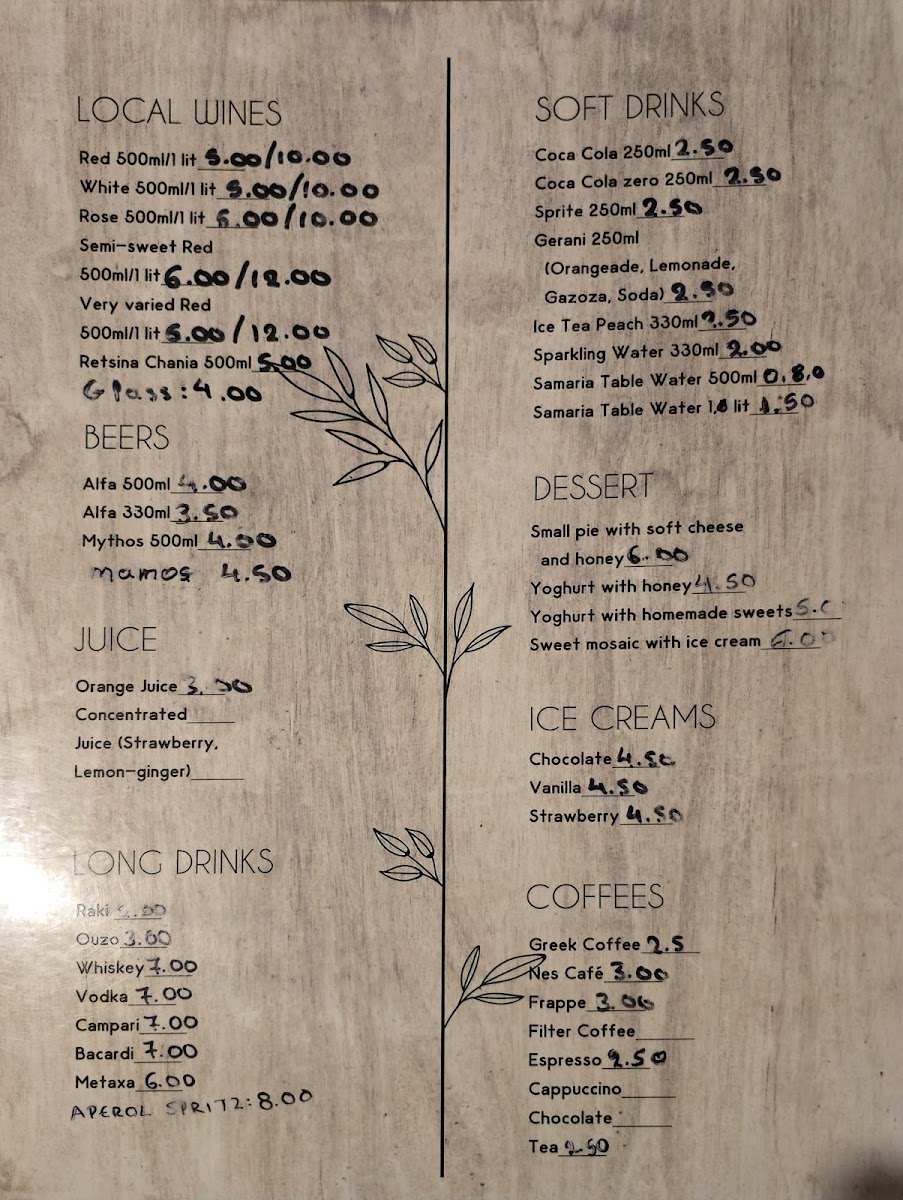 LOCAL WINES
Red 500ml/1 lit 5.00/10.00
White 500ml/1 lit 5.00/10.00
Rose 500ml/1 lit 5.00/10.00
Semi-sweet Red
500ml/1 lit 6.00/12.00
Very varied Red
500ml/1 lit 6.00/12.00
Retsina Chania 500ml 5.00
Glass: 4.00
BEERS
Alfa 500ml 4.00
Alfa 330ml 3.50
Mythos 500ml 4.00
mamos 4.50
JUICE
Orange Juice
Concentrated
Juice (Strawberry,
Lemon-ginger)
LONG DRINKS
Raki
Ouzo 3.00
Whiskey 7.00
Vodka 7.00
Campari 7.00
Bacardi 7.00
Metaxa 6.00
APEROL SPRITZ: 8.00
SOFT DRINKS
Coca Cola 250ml 2.50
Coca Cola zero 250ml 2.50
Sprite 250ml 2.50
Gerani 250ml
(Orangeade, Lemonade,
Gazoza, Soda) 2.50
Ice Tea Peach 330ml 2.50
Sparkling Water 330ml 2.00
Samaria Table Water 500ml 0.80
Samaria Table Water lit 1.50
DESSERT
Small pie with soft cheese
and honey 6.00
Yoghurt with honey 4.50
Yoghurt with homemade sweets
Sweet mosaic with ice cream 6.00
ICE CREAMS
Chocolate 4.50
Vanilla 4.50
Strawberry 4.50
COFFEES
Greek Coffee 2.5
Nes Café 3.00
Frappe 3.00
Filter Coffee
Espresso 2.50
Cappuccino
Chocolate
Tea 2.50